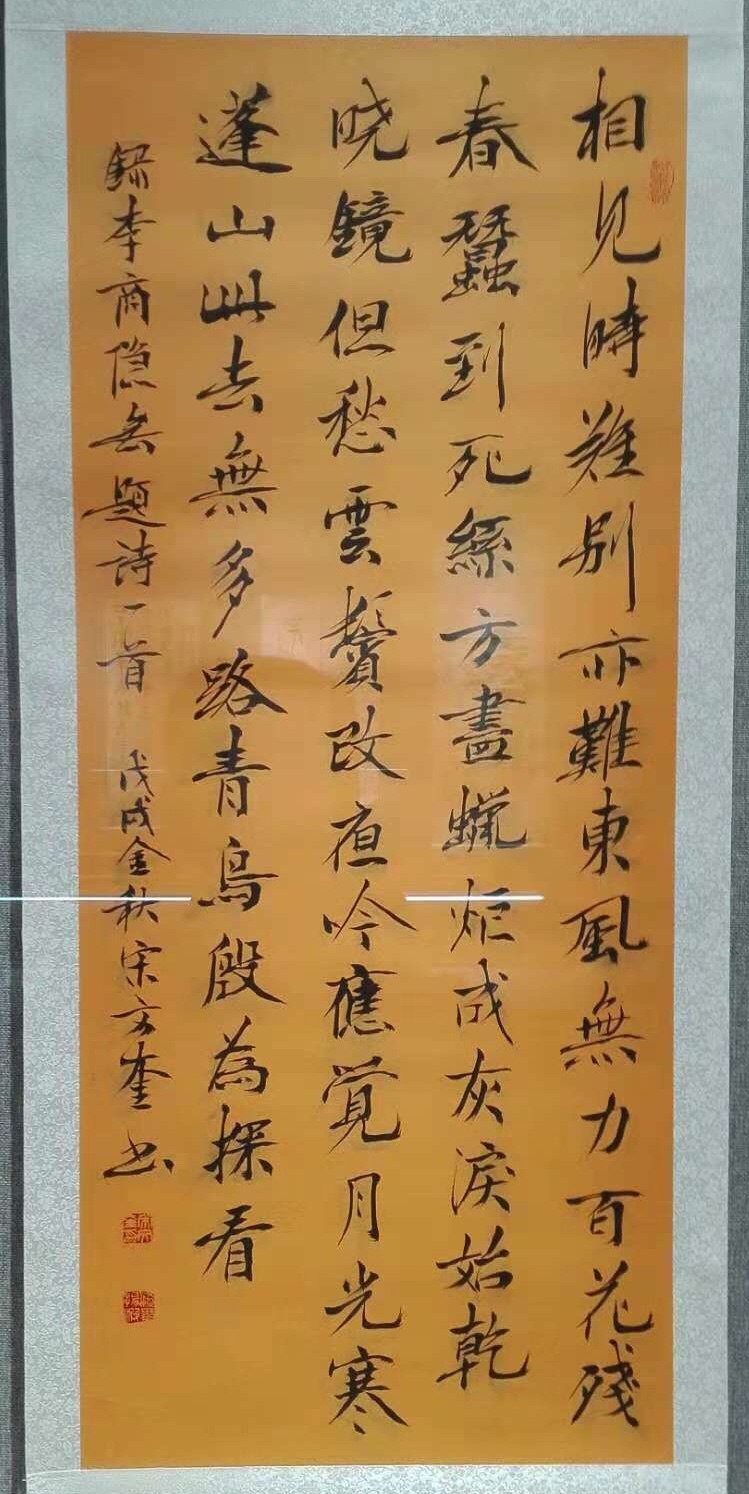 相见時难别亦難東風無力百花殘
春蠶到死絲方盡蠟炬成灰淚始乾
晓鏡但愁雲鬢改夜吟應覚月光寒
蓬山此去無多路青鳥殷為探看
録李商隐無題詩一首 戊戌金秋宋方奎书